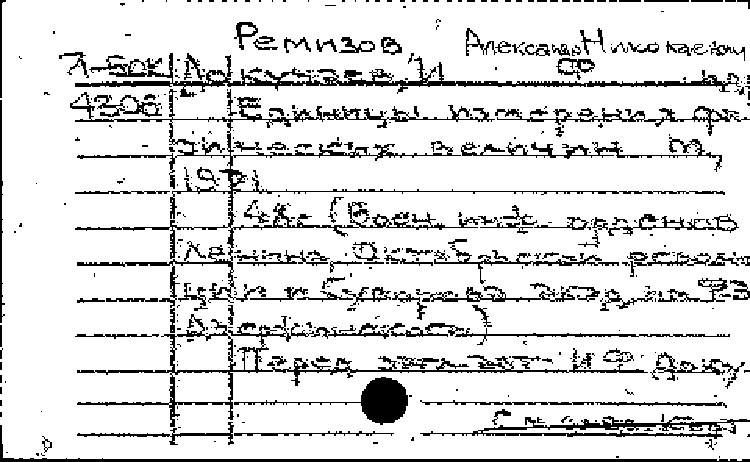 Ремизов, Александр Николаевич
Л-БОК Докучаев, И Ф
4306 Единицы измерения фи-
зических величин М,
1971
48с (Воен. инж. орденов
Ленина, Октябрьской револю-
ции и Суворова акад. им ФЭ
Дзержинского)
Перед загл. авт. И Ф Доку-